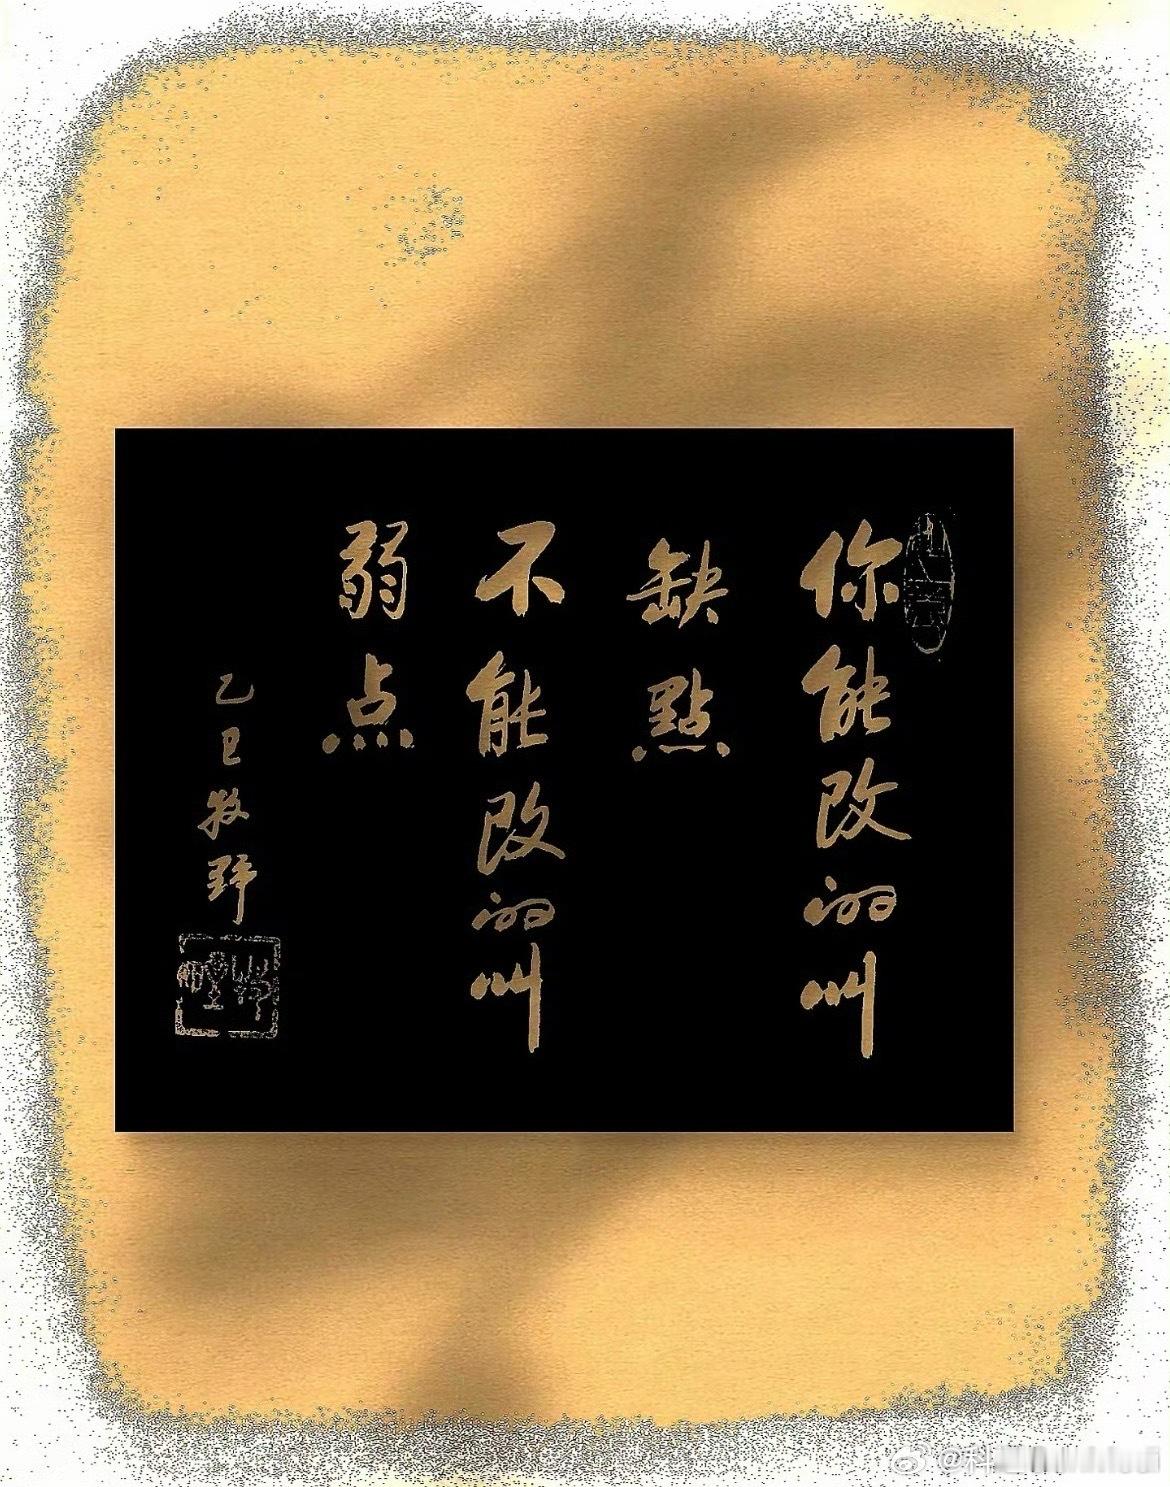 你能改的叫
缺點
不能改的叫
弱点
乙巳牧野
@科